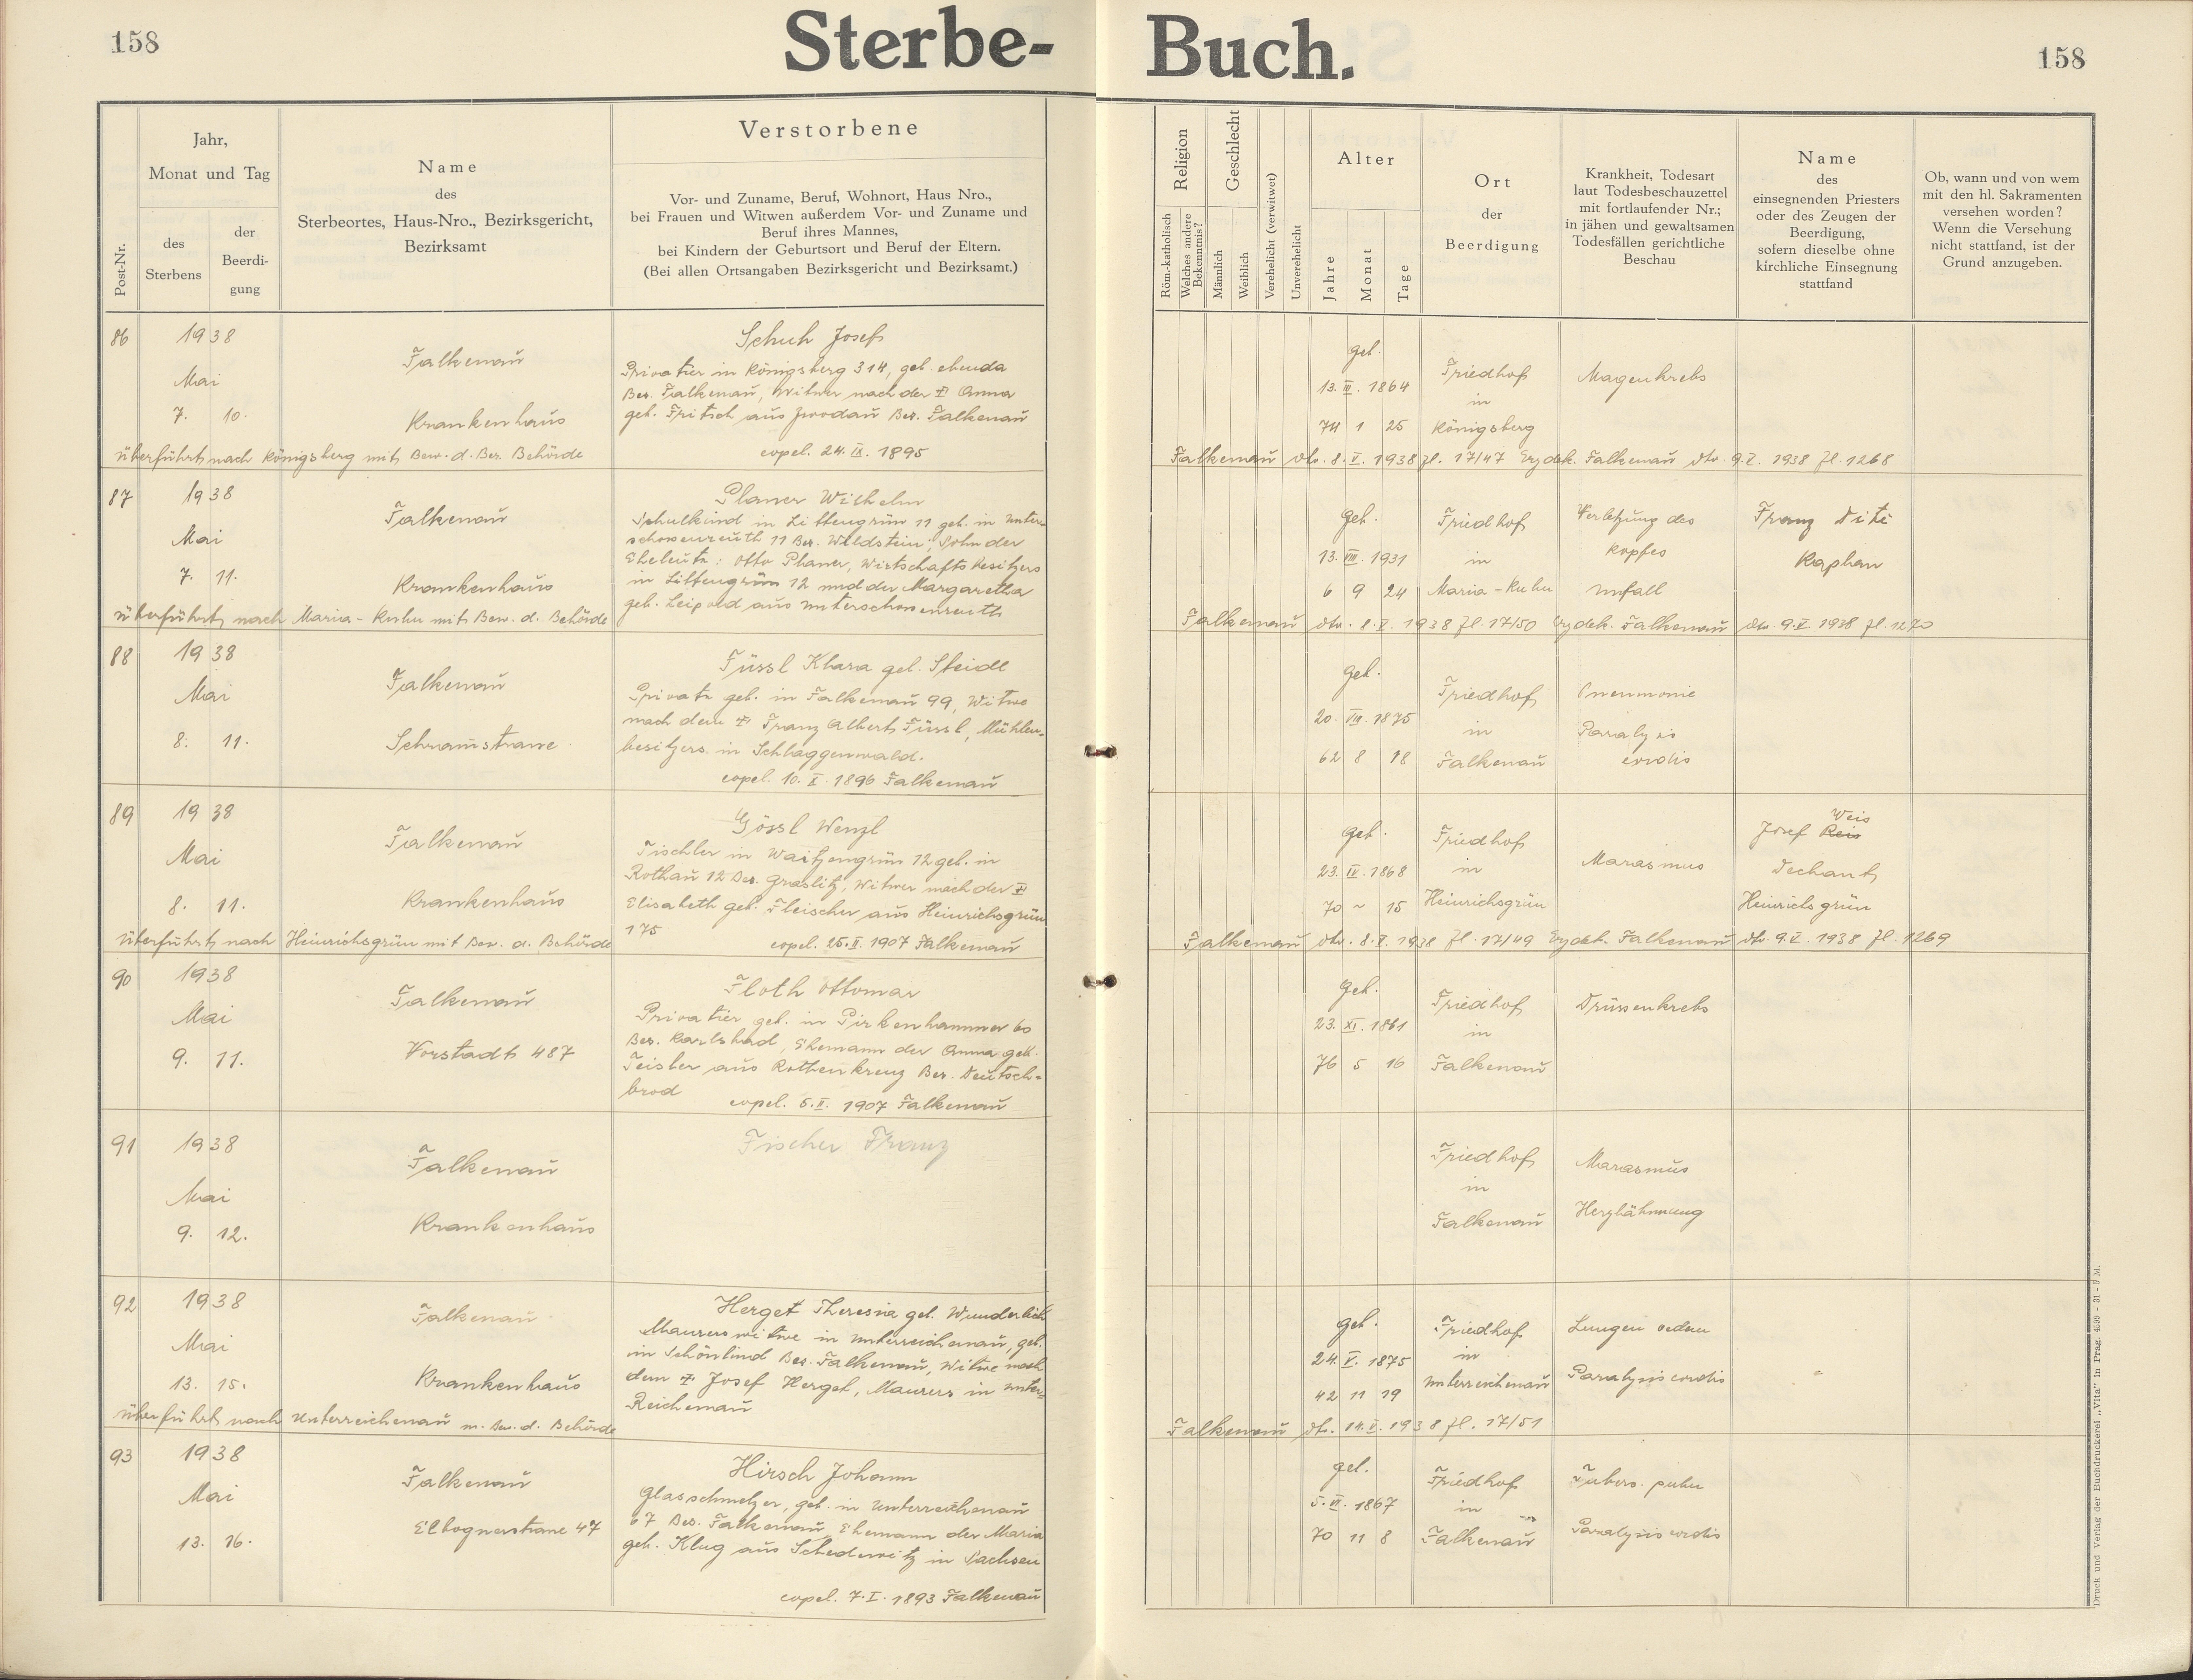 158
Sterbe-Buch.
158
Post-Nr.
Jahr,
Monat und Tag
des
Sterbens
der
Beerdi-
gung
Name
des
Sterbeortes, Haus-Nro., Bezirksgericht,
Bezirksamt
Verstorbene
Vor- und Zuname, Beruf, Wohnort, Haus Nro.,
bei Frauen und Witwen außerdem Vor- und Zuname und
Beruf ihres Mannes,
bei Kindern der Geburtsort und Beruf der Eltern.
(Bei allen Ortsangaben Bezirksgericht und Bezirksamt.)
Religion
Röm.-katholisch
Welches andere
Bekenntnis?
Geschlecht
Männlich
Weiblich
Verehelicht (verwitwet)
Unverehelicht
Alter
Jahre
Monat
Tage
Ort
der
Beerdigung
Krankheit, Todesart
laut Todesbeschauzettel
mit fortlaufender Nr.;
in jähen und gewaltsamen
Todesfällen gerichtliche
Beschau
Name
des
einsegnenden Priesters
oder des Zeugen der
Beerdigung,
sofern dieselbe ohne
kirchliche Einsegnung
stattfand
Ob, wann und von wem
mit den hl. Sakramenten
versehen worden?
Wenn die Versehung
nicht stattfand, ist der
Grund anzugeben.
86
1938
Mai
7. 10.
Falkenau
Krankenhaus
Schuh Josef
Privatier in Königsberg 314, geb. ebenda
Bez. Falkenau, Witwer nach der ✝ Anna
geb. Fritsch aus Zwodau Bez. Falkenau
copel. 24. IX. 1895
geb.
13. III. 1864
74 1 25
Friedhof
in
Königsberg
Magenkrebs
überführt nach Königsberg mit Bew. d. Bez. Behörde
Falkenau dto. 8. V. 1938 Zl. 17/47 Erzdek. Falkenau dto. 9. V. 1938 Zl. 1268
87
1938
Mai
7. 11.
Falkenau
Krankenhaus
Planer Wilhelm
Schulkind in Littengrün 11 geb. in Unter-
schossenreuth 11 Bez. Wildstein; Sohn der
Eheleute: Otto Planer, Wirtschaftsbesitzers
in Littengrün 12 und der Margaretha
geb. Leipold aus Unterschossenreuth
geb.
13. VIII. 1931
6 9 24
Friedhof
in
Maria-Kulm
Verletzung des
Kopfes
Unfall
Franz Dité
Kaplan
überführt nach Maria-Kulm mit Bew. d. Behörde
Falkenau dto. 8. V. 1938 Zl. 17/50 Erzdek. Falkenau dto. 9. V. 1938 Zl. 1270
88
1938
Mai
8. 11.
Falkenau
Schramstrasse
Füssl Klara geb. Steidl
Private geb. in Falkenau 99, Witwe
nach dem ✝ Franz Albert Füssl, Mühlen-
besitzers in Schlaggenwald.
copel. 10. X. 1896 Falkenau
geb.
20. VIII. 1875
62 8 18
Friedhof
in
Falkenau
Pneumonie
Paralysis
cordis
89
1938
Mai
8. 11.
Falkenau
Krankenhaus
Gössl Wenzl
Tischler in Waitzengrün 12 geb. in
Rothau 12 Bez. Graslitz, Witwer nach der ✝
Elisabeth geb. Fleischer aus Heinrichsgrün
175
copel. 25. II. 1907 Falkenau
geb.
23. IV. 1868
70 ~ 15
Friedhof
in
Heinrichsgrün
Marasmus
Weis
Josef Reis
Dechant
Heinrichsgrün
überführt nach Heinrichsgrün mit Bew. d. Behörde
Falkenau dto. 8. V. 1938 Zl. 17/49 Erzdek. Falkenau dto. 9. V. 1938 Zl. 1269
90
1938
Mai
9. 11.
Falkenau
Vorstadt 487
Floth Ottomar
Privatier geb. in Pirkenhammer 60
Bez. Karlsbad, Ehemann der Anna geb.
Teisler aus Rothenkreuz Bez. Deutsch-
brod
copel. 5. II. 1907 Falkenau
geb.
23. XI. 1861
76 5 16
Friedhof
in
Falkenau
Drüsenkrebs
91
1938
Mai
9. 12.
Falkenau
Krankenhaus
Fischer Franz
Friedhof
in
Falkenau
Marasmus
Herzlähmung
92
1938
Mai
13. 15.
Falkenau
Krankenhaus
Herget Theresia geb. Wunderlich
Maurerswitwe in Unterreichenau, geb.
in Schönlind Bez. Falkenau, Witwe nach
dem ✝ Josef Herget, Maurers in Unter-
Reichenau
geb.
24. V. 1875
42 11 19
Friedhof
in
Unterreichenau
Lungenoedem
Paralysis cordis
überführt nach Unterreichenau m. Bew. d. Behörde
Falkenau dt. 14. V. 1938 Zl. 17/51
93
1938
Mai
13. 16.
Falkenau
Elbognerstrasse 47
Hirsch Johann
Glasschmelzer, geb. in Unterreichenau
67 Bez. Falkenau, Ehemann der Maria
geb. Klug aus Schedewitz in Sachsen
copel. 7. I. 1893 Falkenau
geb.
5. VI. 1867
70 11 8
Friedhof
in
Falkenau
Tuberc. pulm
Paralysis cordis
Druck und Verlag der Buchdruckerei „Vita" in Prag.